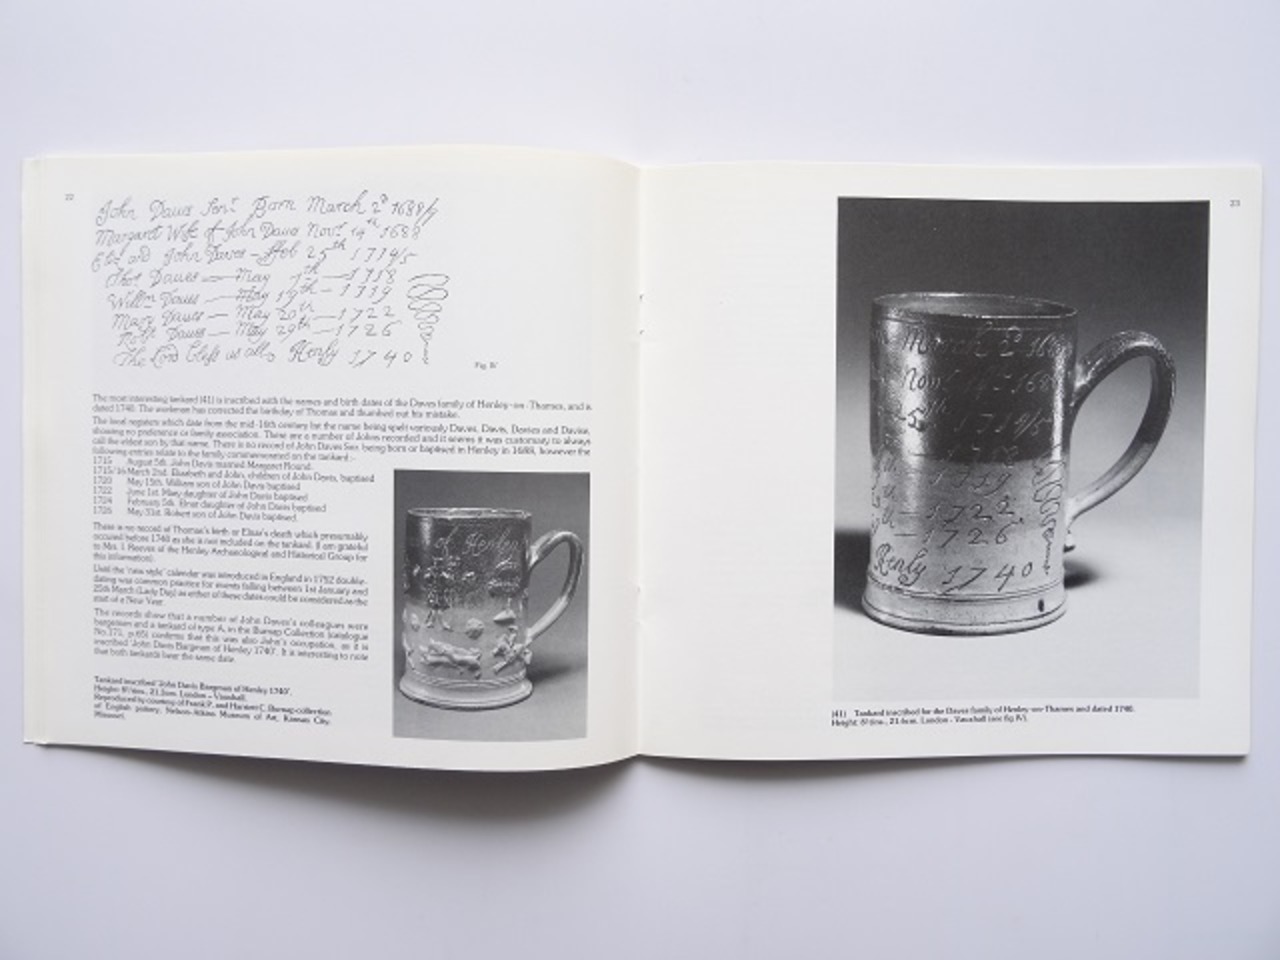 22
John Daues Senr Born March 2d 1688/7
Margaret Wife of John Daues Novr 14th 1688
Eliz and John Daues - ffeb 25th 1714/5
Thos Daues — May 7th — 1718
Willm Daues — May 19th — 1719
Mary Daues — May 20th — 1722
Robt Daues — May 29th — 1726
The Lord bless us all Henly 1740
Fig. IV
The most interesting tankard (41) is inscribed with the names and birth dates of the Daves family of Henley-on-Thames, and is
dated 1740. The workman has corrected the birthday of Thomas and thumbed out his mistake.
The local registers which date from the mid-16th century list the name being spelt variously Daves, Davis, Davies and Davise,
showing no preference or family association. There are a number of Johns recorded and it seems it was customary to always
call the eldest son by that name. There is no record of John Daves Snr. being born or baptised in Henley in 1688, however the
following entries relate to the family commemorated on the tankard:-
1715 August 5th. John Davis married Margaret Round.
1715/16 March 2nd. Elizabeth and John, children of John Davis, baptised
1720 May 15th. William son of John Davis baptised
1722 June 1st. Mary daughter of John Davis baptised
1724 February 5th. daughter of John Davis baptised
1726 May 31st. Robert son of John Davis baptised.
There is no record of Thomas's birth or death which presumably
occured before 1740 as she is not included on the tankard. (I am grateful
to Mrs. Reeves of the Henley Archaeological and Historical Group for
this information).
Until the 'new style' calendar was introduced in England in 1752 double-
dating was common practice for events falling between 1st January and
25th March (Lady Day) as either of these dates could be considered as the
start of a New Year.
The records show that a number of John Daves's colleagues were
bargemen and a tankard of type A, in the Burnap Collection (catalogue
No.171, p.65) confirms that this was also John's occupation, as it is
inscribed 'John Davis Bargman of Henley 1740'. It is interesting to note
that both tankards bear the same date.
Tankard inscribed 'John Davis Bargman of Henley 1740'.
Height: 8½ins., 21.5cm. London - Vauxhall.
Reproduced by courtesy of Frank P. and Harriet C. Burnap collection
of English pottery, Nelson-Atkins Museum of Art, Kansas City,
Missouri.
of Henley
23
March 2 168
Novr 14 - 168
5th 1714/5
1718
1719
1722
1726
Henly 1740
(41) Tankard inscribed for the Daves family of Henley-on-Thames and dated 1740.
Height: 8½ins., 21.6cm. London - Vauxhall (see fig. IV).